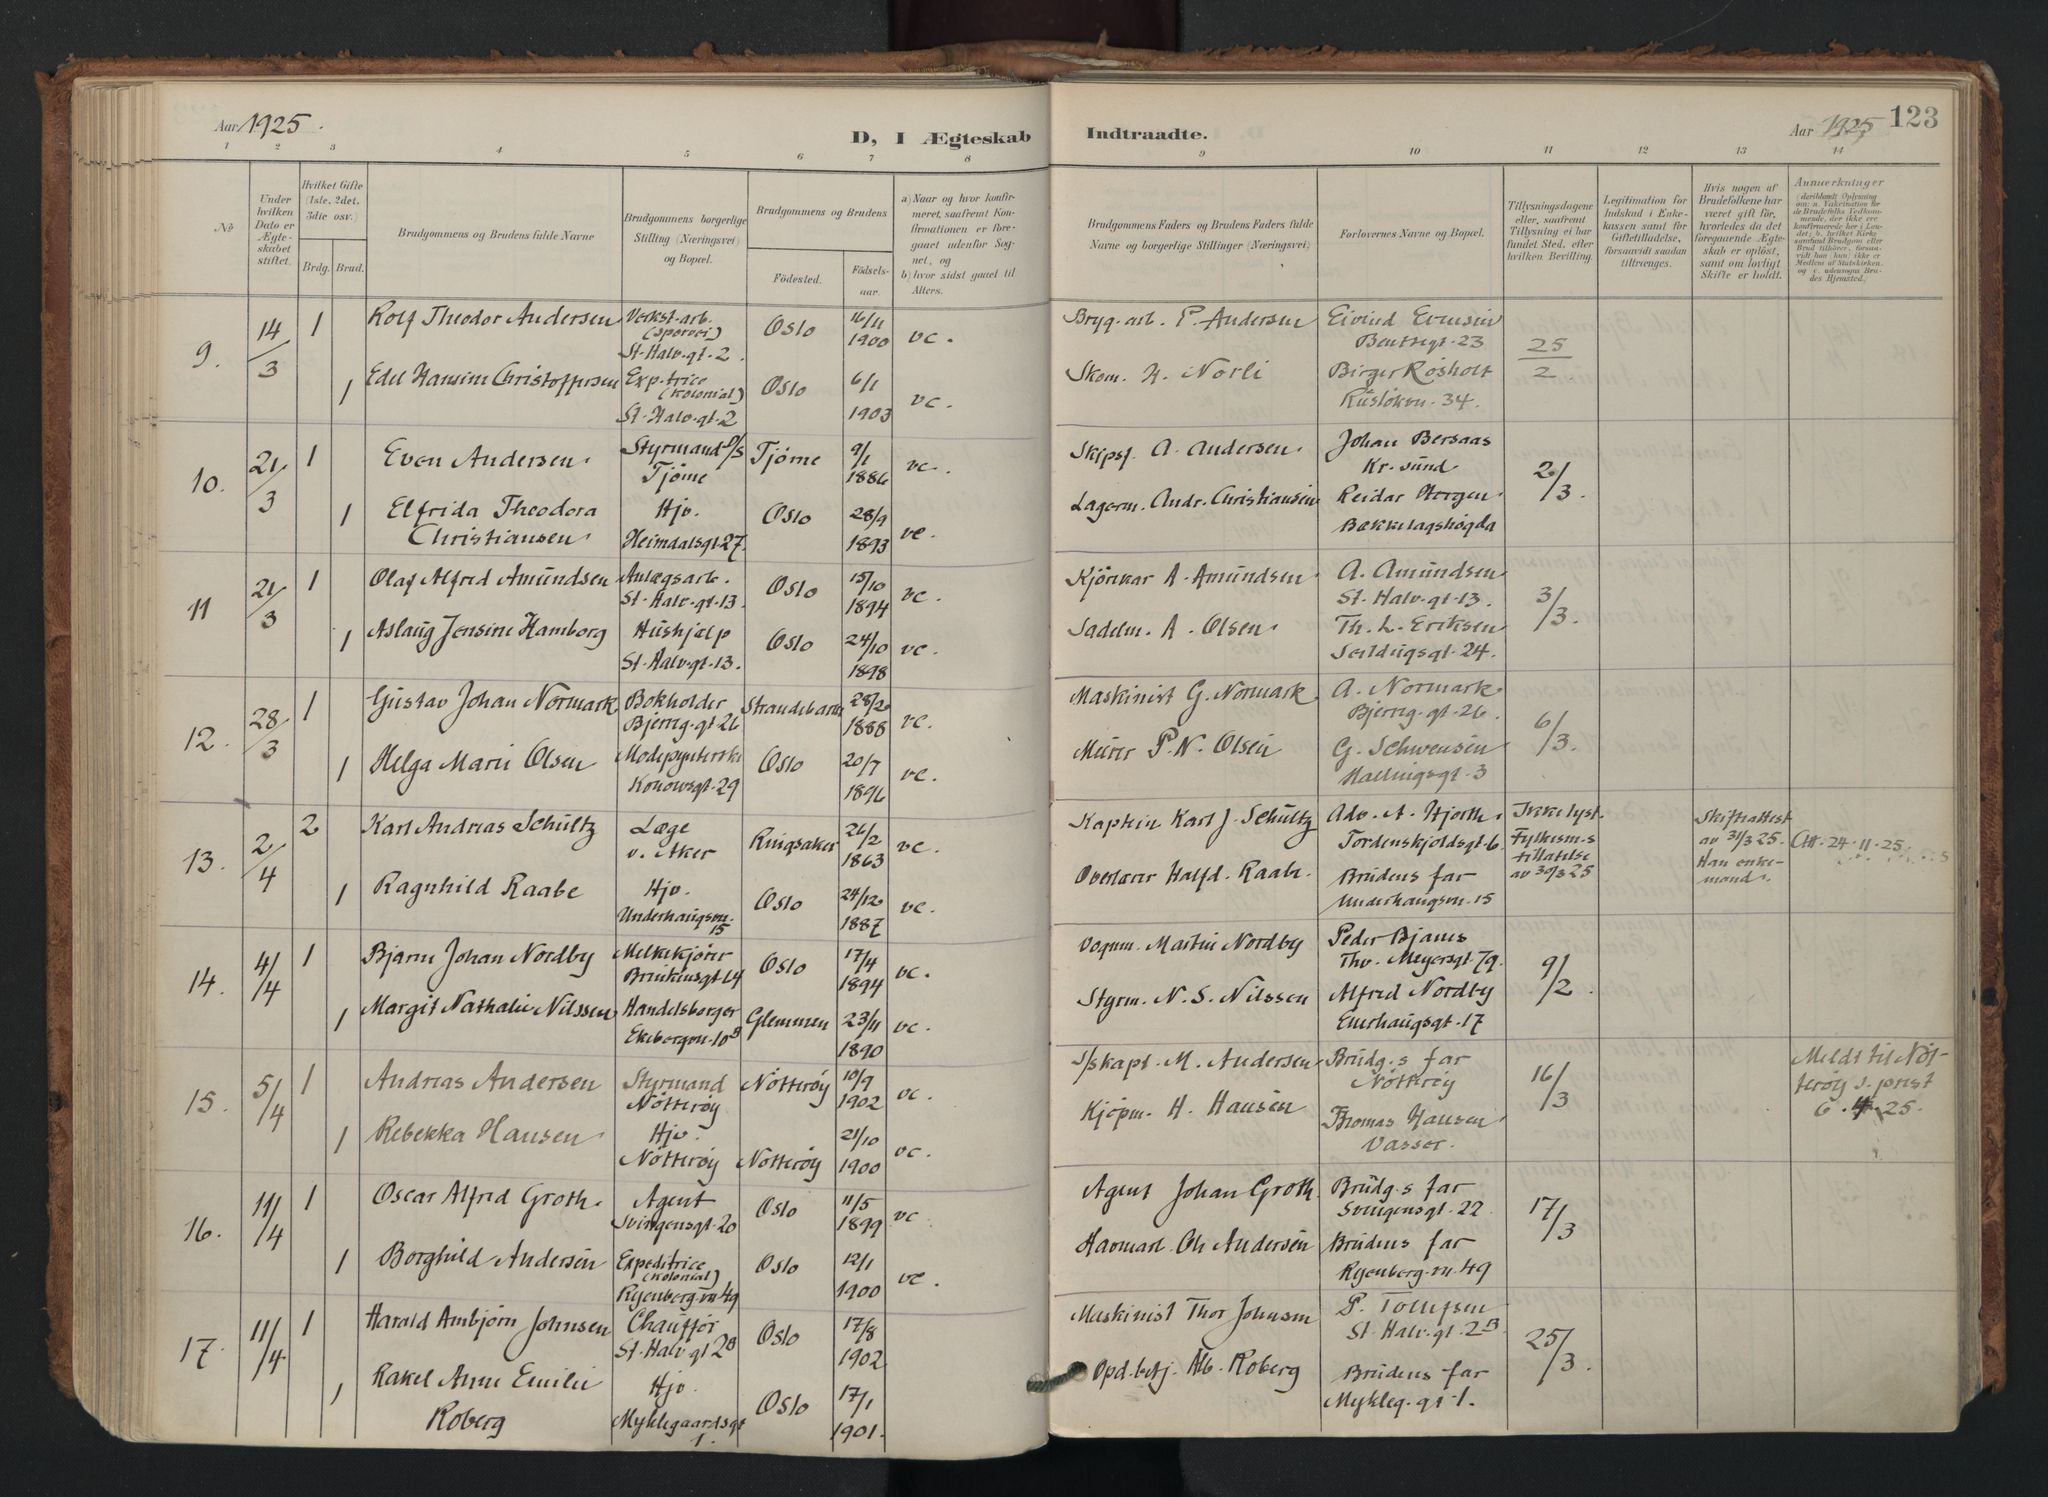 Aar 1925.
D, I Ægteskab
Indtraadte.
Aar 1925
123
1 2 3 4 5 6 7 8 9 10 11 12 13 14
№
Under hvilken Dato er Ægteskabet stiftet.
Hvilket Gifte (1ste, 2det, 3die osv.)
Brdg. Brud.
Brudgommens og Brudens fulde Navne
Brudgommens borgerlige Stilling (Næringsvei) og Bopæl.
Brudgommens og Brudens
Fødested.
Fødselsaar.
a) Naar og hvor konfirmeret, saafremt Konfirmationen er foregaaet udenfor Sognet, og
b) hvor sidst gaaet til Alters.
Brudgommens Faders og Brudens Faders fulde Navne og borgerlige Stillinger (Næringsvei)
Forlovernes Navne og Bopæl.
Tillysningsdagene eller, saafremt Tillysning ei har fundet Sted, efter hvilken Bevilling.
Legitimation for Indskud i Enkekassen samt for Giftetilladelse, forsaavidt saadan tiltrænges.
Hvis nogen af Brudefolkene har været gift før, hvorledes da det foregaaende Ægteskab er opløst, samt om lovligt Skifte er holdt.
Anmerkninger
9. 14/3 1 Rolf Theodor Andersen Verkst.arb. (Sporvei) St. Halv. gt. 2. Oslo 16/11 1900 vc. Bryg. arb. P. Andersen Eivind Evensen Bentsegt. 23 25/2
1 Edel Hansine Christoffersen Exp.trice (kolonial) St. Halv. gt. 2 Oslo 6/1 1903 vc. Skom. H. Norli Birger Rosholt Ruseløkvn. 34.
10. 21/3 1 Even Andersen Styrmand D/S Tjøme Tjøme 9/1 1886 vc. Skipsf. A. Andersen. Johan Bersaas Kr. sund 2/3.
1 Elfrida Theodora Christiansen Hjv. Heimdalsgt. 27. Oslo 28/9 1893 vc. Lagerm. Andr. Christiansen Reidar Horgen Bækkelagshøgda
11 21/3 1 Olaf Alfred Amundsen Anlægsarb. St. Halv. gt. 13. Oslo 15/10 1894 vc. Kjørekar A. Amundsen A. Amundsen St. Halv. gt. 13. 3/3.
1 Aslaug Jensine Hamborg Hushjelp St. Halv. gt. 13. Oslo 24/10 1898 vc. Sadelm. A. Olsen Th. L. Eriksen Seildugsgt. 24.
12. 28/3 1 Gustav Johan Normark Bokholder Bjerreg. gt. 26 Strandebarm 28/2 1888 vc. Maskinist G. Normark. A. Normark Bjerreg. gt. 26. 6/3.
1 Helga Marie Olsen Modepynterske Konowsgt. 29 Oslo 20/7 1896 vc. Murer P. N. Olsen G. Schwensen Hallingsgt. 3
13. 2/4 2 Karl Andreas Schultz Læge v. Aker Ringsaker 26/2 1863 vc. Kaptein Karl J. Schultz Adv. A. Hjorth. Tordenskjoldsgt. 6 Ikke lyst. Fylkesm.s tillatelse av 30/3 25 Skifteattest av 31/3 25. Han enkemand. Att. 24.11.25.
1 Ragnhild Raabe Hjv. Underhaugsvn. 15 Oslo 24/12 1887 vc. Overlærer Halfd. Raabe. Brudens far Underhaugsvn. 15
14. 4/4 1 Bjarne Johan Nordby Melkekjører Brinkensgt. 14 Oslo 17/4 1894 vc. Vognm. Martin Nordby Peder Bjanes Thv. Meyersgt. 79. 9/2
1 Margit Nathalie Nilssen Handelsborger Ekebergvn. 10B Glemmen 23/11 1890 vc. Styrm. N. S. Nilssen Alfred Nordby Enerhaugsgt. 17
15. 5/4 1 Andreas Andersen Styrmand Nøtterøy Nøtterøy 10/9 1902 vc. S/skapt. M. Andersen Brudg.s far Nøtterøy 16/3 Meldt til Nøtterøy s. prest 6.4.25.
1 Rebekka Hansen Hjv. Nøtterøy Nøtterøy 21/10 1900 vc. Kjøpm. H. Hansen Thomas Hansen Vasser.
16. 11/4 1 Oscar Alfred Groth. Agent Svingensgt. 20 Oslo 11/5 1899 vc Agent Johan Groth. Brudg.s far Svingensgt. 22 17/3
1 Borghild Andersen Expeditrice (kolonial) Ryenberg.vn 49 Oslo 12/1 1900 vc. Havnearb. Ole Andersen Brudens far Ryenberg. vn. 49
17. 11/4 1 Harald Ambjørn Johnsen Chauffør St. Halv. gt 2B Oslo 17/8 1902 Maskinist Thor Johnsen P. Tollefsen St. Halv. gt. 2B 25/3.
1 Rakel Anne Emilie Roberg Hjv. Myklegaardsgt 1. Oslo 17/1 1901. Opd.betj. Alb. Roberg Brudens far Mykleg. gt. 1.